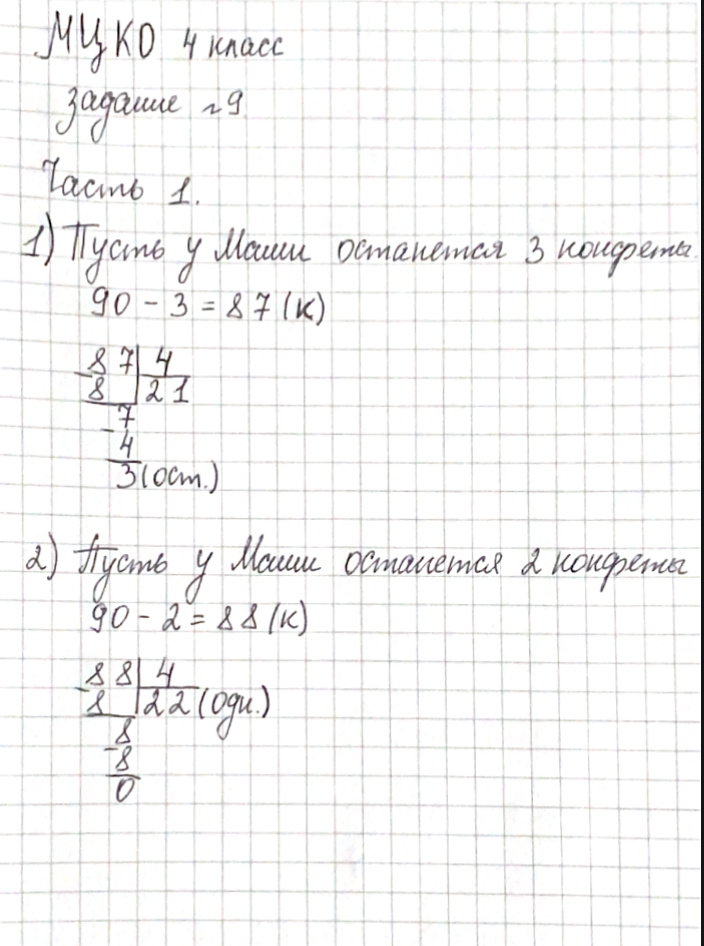 МЦКО 4 класс
Задание №9
Часть 1.
1) Пусть у Маши останется 3 конфеты.
90 - 3 = 87 (к)
87 | 4
- 8 | 21
7
- 4
3 (ост.)
2) Пусть у Маши останется 2 конфеты
90 - 2 = 88 (к)
88 | 4
- 8 | 22 (одн.)
8
- 8
0